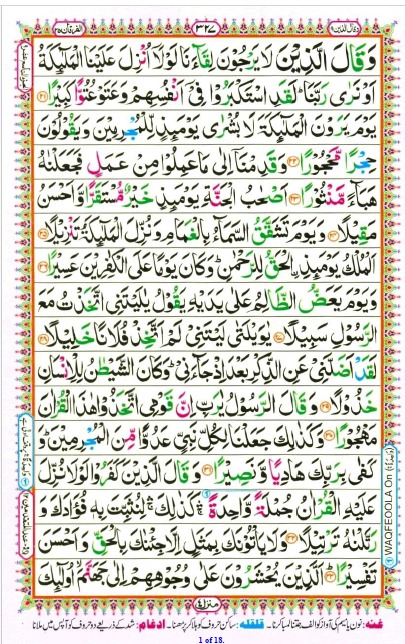 وقال الذین ١٩
٣٢٧
الفرقان ٢٥
وَقَالَ الَّذِيْنَ لَا يَرْجُوْنَ لِقَآءَنَا لَوْلَاۤ اُنْزِلَ عَلَيْنَا الْمَلٰٓئِكَةُ
اَوْ نَرٰى رَبَّنَا ؕ لَقَدِ اسْتَكْبَرُوْا فِىْۤ اَنْفُسِهِمْ وَعَتَوْ عُتُوًّا كَبِيْرًا ﴿۲۱﴾
يَوْمَ يَرَوْنَ الْمَلٰٓئِكَةَ لَا بُشْرٰى يَوْمَئِذٍ لِّلْمُجْرِمِيْنَ وَيَقُوْلُوْنَ
حِجْرًا مَّحْجُوْرًا ﴿۲۲﴾ وَقَدِمْنَاۤ اِلٰى مَا عَمِلُوْا مِنْ عَمَلٍ فَجَعَلْنٰهُ
هَبَآءً مَّنْثُوْرًا ﴿۲۳﴾ اَصْحٰبُ الْجَنَّةِ يَوْمَئِذٍ خَيْرٌ مُّسْتَقَرًّا وَّاَحْسَنُ
مَقِيْلًا ﴿۲۴﴾ وَيَوْمَ تَشَقَّقُ السَّمَآءُ بِالْغَمَامِ وَنُزِّلَ الْمَلٰٓئِكَةُ تَنْزِيْلًا ﴿۲۵﴾
اَلْمُلْكُ يَوْمَئِذِ ۨالْحَقُّ لِلرَّحْمٰنِ ؕ وَكَانَ يَوْمًا عَلَى الْكٰفِرِيْنَ عَسِيْرًا ﴿۲۶﴾
وَيَوْمَ يَعَضُّ الظَّالِمُ عَلٰى يَدَيْهِ يَقُوْلُ يٰلَيْتَنِى اتَّخَذْتُ مَعَ
الرَّسُوْلِ سَبِيْلًا ﴿۲۷﴾ يٰوَيْلَتٰى لَيْتَنِىْ لَمْ اَتَّخِذْ فُلَانًا خَلِيْلًا ﴿۲۸﴾
لَقَدْ اَضَلَّنِىْ عَنِ الذِّكْرِ بَعْدَ اِذْ جَآءَنِىْ ؕ وَكَانَ الشَّيْطٰنُ لِلْاِنْسَانِ
خَذُوْلًا ﴿۲۹﴾ وَقَالَ الرَّسُوْلُ يٰرَبِّ اِنَّ قَوْمِى اتَّخَذُوْا هٰذَا الْقُرْاٰنَ
مَهْجُوْرًا ﴿۳۰﴾ وَكَذٰلِكَ جَعَلْنَا لِكُلِّ نَبِىٍّ عَدُوًّا مِّنَ الْمُجْرِمِيْنَ ؕ وَ
كَفٰى بِرَبِّكَ هَادِيًا وَّنَصِيْرًا ﴿۳۱﴾ وَقَالَ الَّذِيْنَ كَفَرُوْا لَوْلَا نُزِّلَ
عَلَيْهِ الْقُرْاٰنُ جُمْلَةً وَّاحِدَةً ۛۚ كَذٰلِكَ ۛۚ لِنُثَبِّتَ بِهٖ فُؤَادَكَ وَ
رَتَّلْنٰهُ تَرْتِيْلًا ﴿۳۲﴾ وَلَا يَاْتُوْنَكَ بِمَثَلٍ اِلَّا جِئْنٰكَ بِالْحَقِّ وَاَحْسَنَ
تَفْسِيْرًا ﴿۳۳﴾ اَلَّذِيْنَ يُحْشَرُوْنَ عَلٰى وُجُوْهِهِمْ اِلٰى جَهَنَّمَ ۙ اُولٰٓئِكَ
WAQFEOOLA On
منزل ٤
غنہ: نون یا میم کی آواز کو الف جتنا لمبا کرنا۔ قلقلہ: ساکن حروف کو ہلا کر پڑھنا۔ ادغام: شد کے ذریعے دو حروف کو آپس میں ملانا
1 of 18.